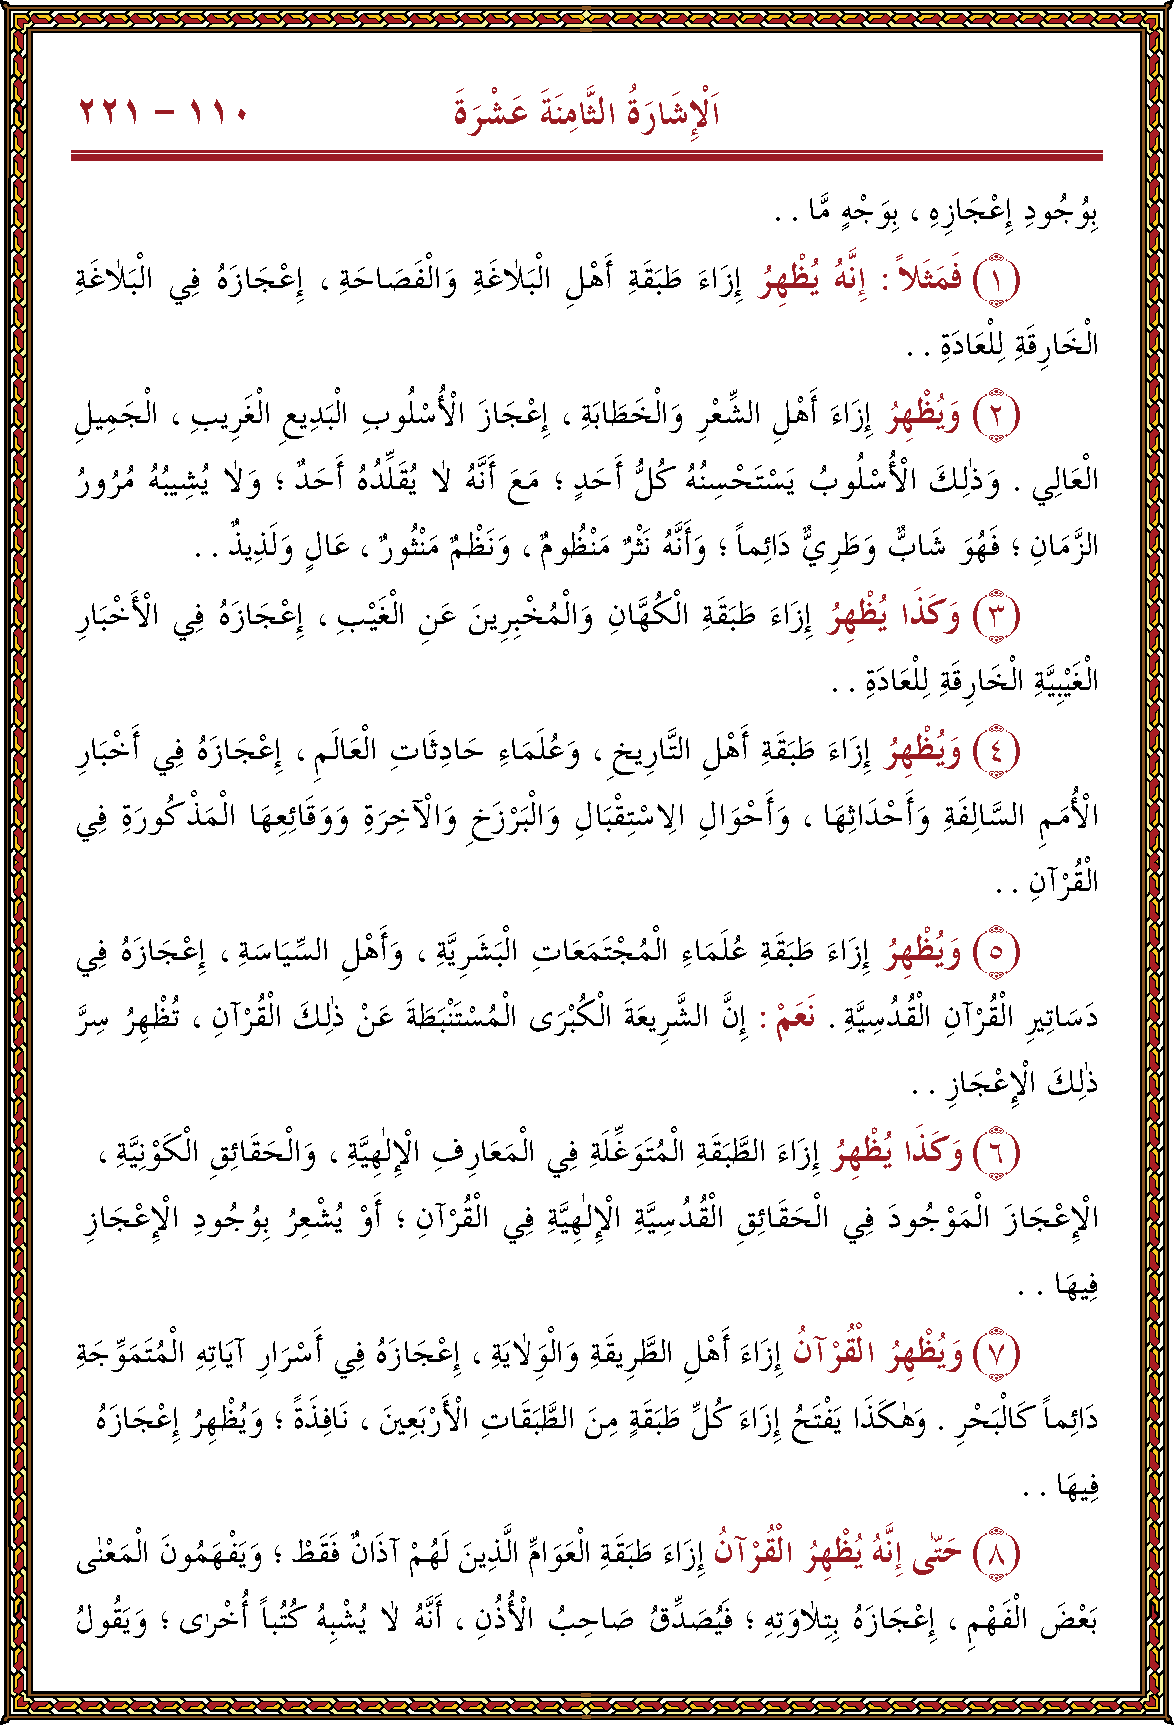 اَلْإِشَارَةُ الثَّامِنَةَ عَشْرَةَ ١١٠ – ٢٢١
بِوُجُودِ إِعْجَازِهِ ، بِوَجْهٍ مَّا . .
(١) فَمَثَلاً : إِنَّهُ يُظْهِرُ إِزَاءَ طَبَقَةِ أَهْلِ الْبَلَاغَةِ وَالْفَصَاحَةِ ، إِعْجَازَهُ فِي الْبَلَاغَةِ
الْخَارِقَةِ لِلْعَادَةِ . .
(٢) وَيُظْهِرُ إِزَاءَ أَهْلِ الشِّعْرِ وَالْخَطَابَةِ ، إِعْجَازَ الْأُسْلُوبِ الْبَدِيعِ الْغَرِيبِ ، الْجَمِيلِ
الْعَالِي . وَذٰلِكَ الْأُسْلُوبُ يَسْتَحْسِنُهُ كُلُّ أَحَدٍ ؛ مَعَ أَنَّهُ لَا يُقَلِّدُهُ أَحَدٌ ؛ وَلَا يُشِيبُهُ مُرُورُ
الزَّمَانِ ؛ فَهُوَ شَابٌّ وَطَرِيٌّ دَائِماً ؛ وَأَنَّهُ نَثْرٌ مَنْظُومٌ ، وَنَظْمٌ مَنْثُورٌ ، عَالٍ وَلَذِيذٌ . .
(٣) وَكَذَا يُظْهِرُ إِزَاءَ طَبَقَةِ الْكُهَّانِ وَالْمُخْبِرِينَ عَنِ الْغَيْبِ ، إِعْجَازَهُ فِي الْأَخْبَارِ
الْغَيْبِيَّةِ الْخَارِقَةِ لِلْعَادَةِ . .
(٤) وَيُظْهِرُ إِزَاءَ طَبَقَةِ أَهْلِ التَّارِيخِ ، وَعُلَمَاءِ حَادِثَاتِ الْعَالَمِ ، إِعْجَازَهُ فِي أَخْبَارِ
الْأُمَمِ السَّالِفَةِ وَأَحْدَاثِهَا ، وَأَحْوَالِ الِاسْتِقْبَالِ وَالْبَرْزَخِ وَالْآخِرَةِ وَوَقَائِعِهَا الْمَذْكُورَةِ فِي
الْقُرْآنِ . .
(٥) وَيُظْهِرُ إِزَاءَ طَبَقَةِ عُلَمَاءِ الْمُجْتَمَعَاتِ الْبَشَرِيَّةِ ، وَأَهْلِ السِّيَاسَةِ ، إِعْجَازَهُ فِي
دَسَاتِيرِ الْقُرْآنِ الْقُدُسِيَّةِ . نَعَمْ : إِنَّ الشَّرِيعَةَ الْكُبْرَى الْمُسْتَنْبَطَةَ عَنْ ذٰلِكَ الْقُرْآنِ ، تُظْهِرُ سِرَّ
ذٰلِكَ الْإِعْجَازِ . .
(٦) وَكَذَا يُظْهِرُ إِزَاءَ الطَّبَقَةِ الْمُتَوَغِّلَةِ فِي الْمَعَارِفِ الْإِلٰهِيَّةِ ، وَالْحَقَائِقِ الْكَوْنِيَّةِ ،
الْإِعْجَازَ الْمَوْجُودَ فِي الْحَقَائِقِ الْقُدُسِيَّةِ الْإِلٰهِيَّةِ فِي الْقُرْآنِ ؛ أَوْ يُشْعِرُ بِوُجُودِ الْإِعْجَازِ
فِيهَا . .
(٧) وَيُظْهِرُ الْقُرْآنُ إِزَاءَ أَهْلِ الطَّرِيقَةِ وَالْوِلَايَةِ ، إِعْجَازَهُ فِي أَسْرَارِ آيَاتِهِ الْمُتَمَوِّجَةِ
دَائِماً كَالْبَحْرِ . وَهٰكَذَا يَفْتَحُ إِزَاءَ كُلِّ طَبَقَةٍ مِنَ الطَّبَقَاتِ الْأَرْبَعِينَ ، نَافِذَةً ؛ وَيُظْهِرُ إِعْجَازَهُ
فِيهَا . .
(٨) حَتّٰى إِنَّهُ يُظْهِرُ الْقُرْآنُ إِزَاءَ طَبَقَةِ الْعَوَامِّ الَّذِينَ لَهُمْ آذَانٌ فَقَطْ ؛ وَيَفْهَمُونَ الْمَعْنٰى
بَعْضَ الْفَهْمِ ، إِعْجَازَهُ بِتِلَاوَتِهِ ؛ فَيُصَدِّقُ صَاحِبُ الْأُذُنِ ، أَنَّهُ لَا يُشْبِهُ كُتُباً أُخْرٰى ؛ وَيَقُولُ